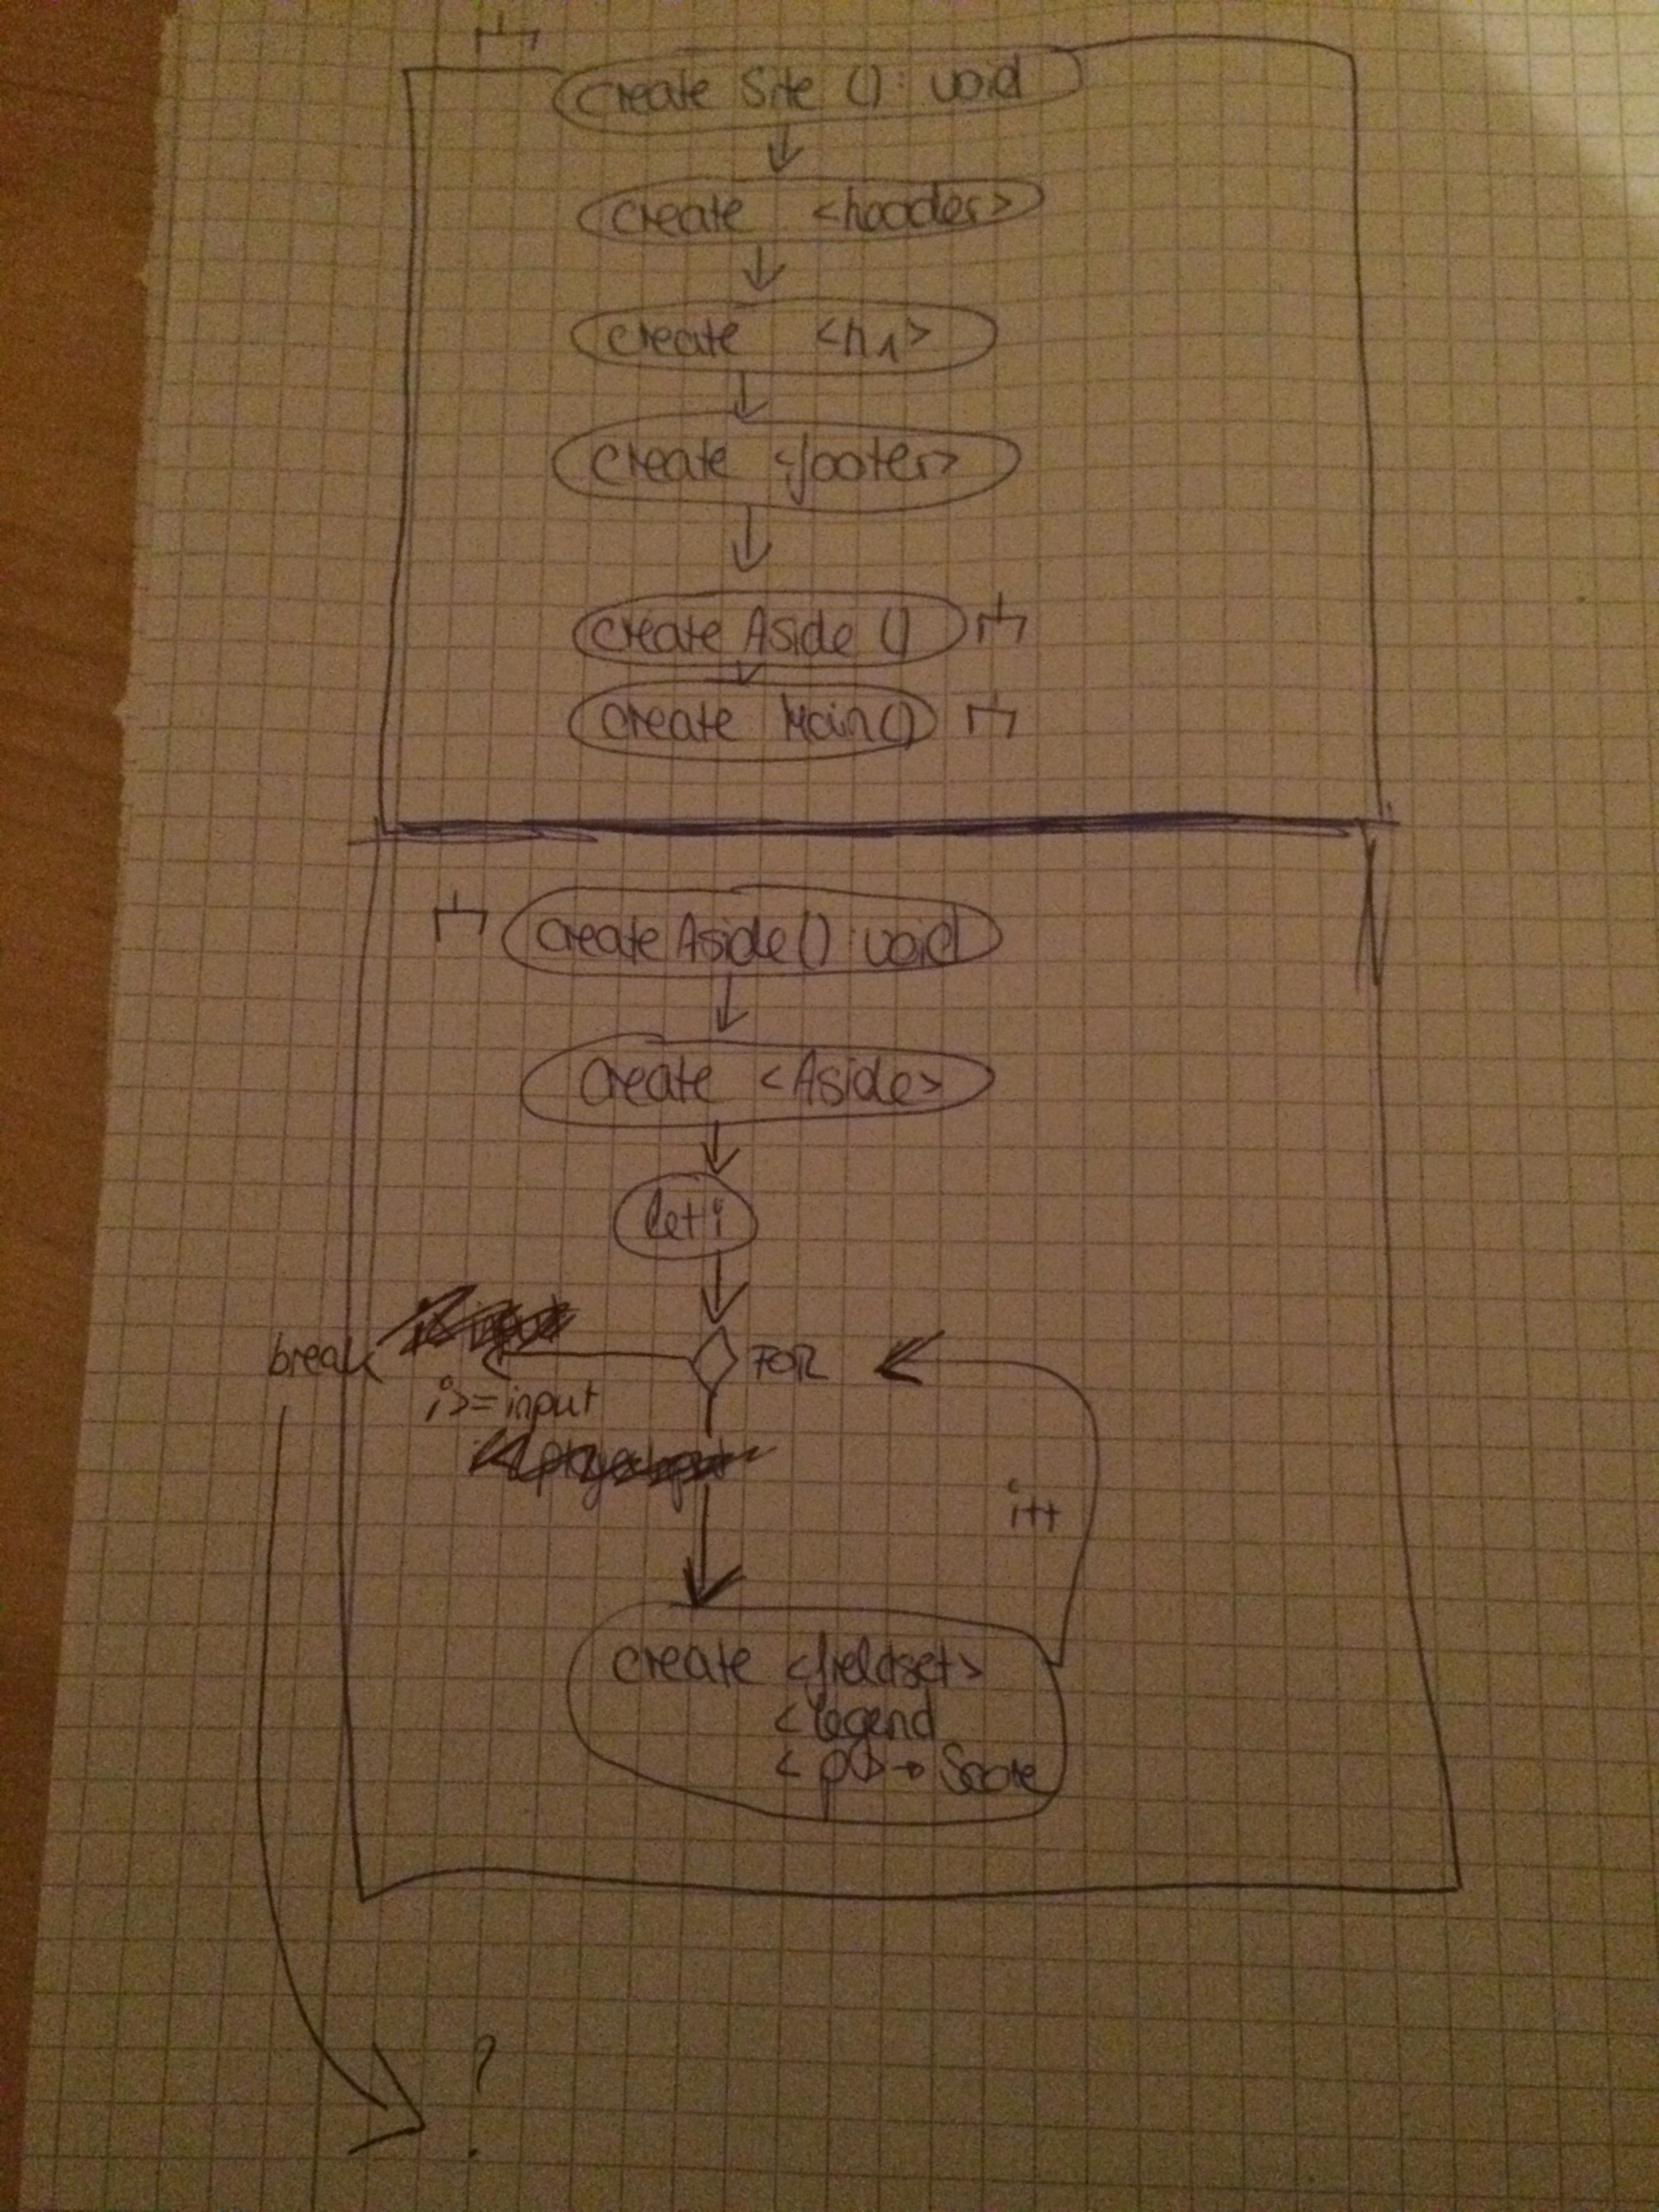 create Site () : void
create <header>
create <h1>
create <footer>
create Aside ()
create Main()
create Aside() : void
create <Aside>
let i
break
FOR
i>=input
i++
create <fieldset>
<legend
< p> → Score
?